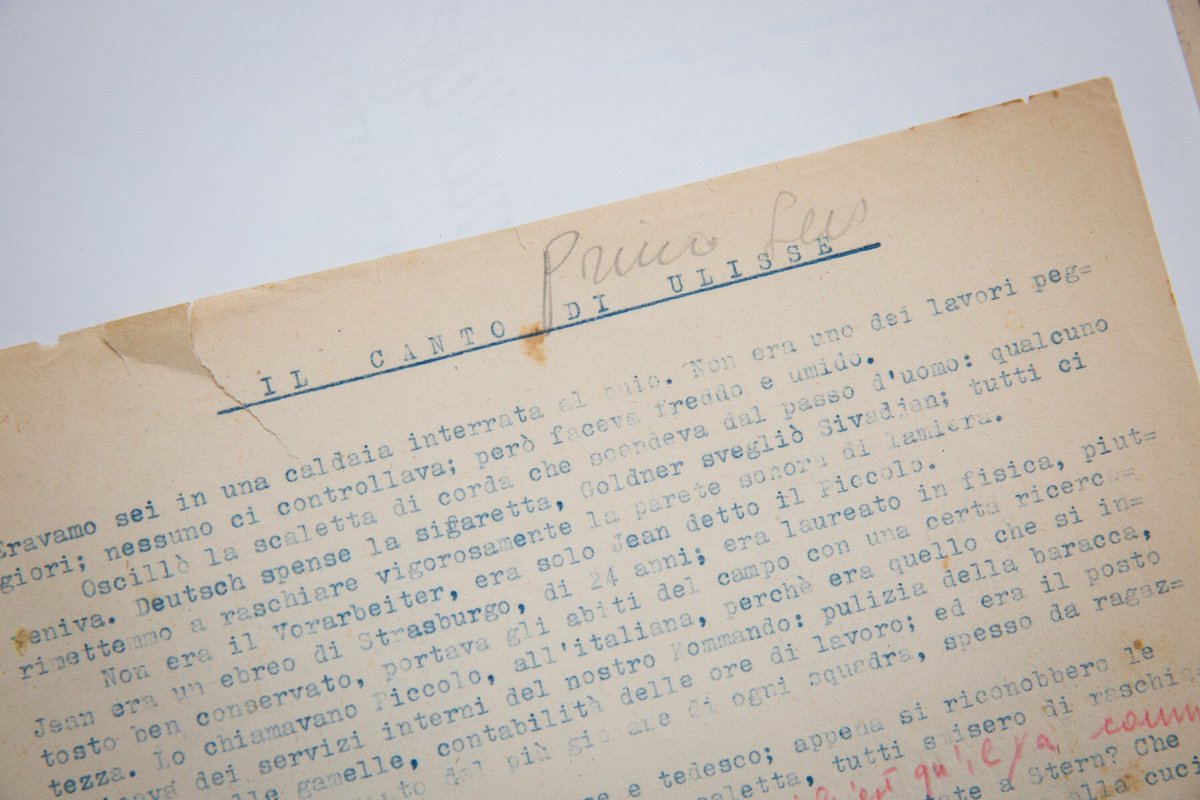 Primo Levi
IL CANTO DI ULISSE
Eravamo sei in una caldaia interrata al buio. Non era uno dei lavori peg=
giori; nessuno ci controllava; però faceva freddo e umido.
Oscillò la scaletta di corda che scendeva dal passo d'uomo: qualcuno
veniva. Deutsch spense la sigaretta, Goldner svegliò Sivadjan; tutti ci
rimettemmo a raschiare vigorosamente la parete sonora di lamiera.
Non era il Vorarbeiter, era solo Jean detto il Piccolo.
Jean era un ebreo di Strasburgo, di 24 anni; era laureato in fisica, piut=
tosto ben conservato, portava gli abiti del campo con una certa ricerca=
tezza. Lo chiamavano Piccolo, all'italiana, perchè era quello che si in=
dei servizi interni del nostro Kommando: pulizia della baracca,
gamelle, contabilità delle ore di lavoro; ed era il posto
dal più gio ane di ogni squadra, spesso da ragaz=
e tedesco; appena si riconobbero le
tutti smisero di raschia
qu'il y a
a Stern? Che
alla cuci